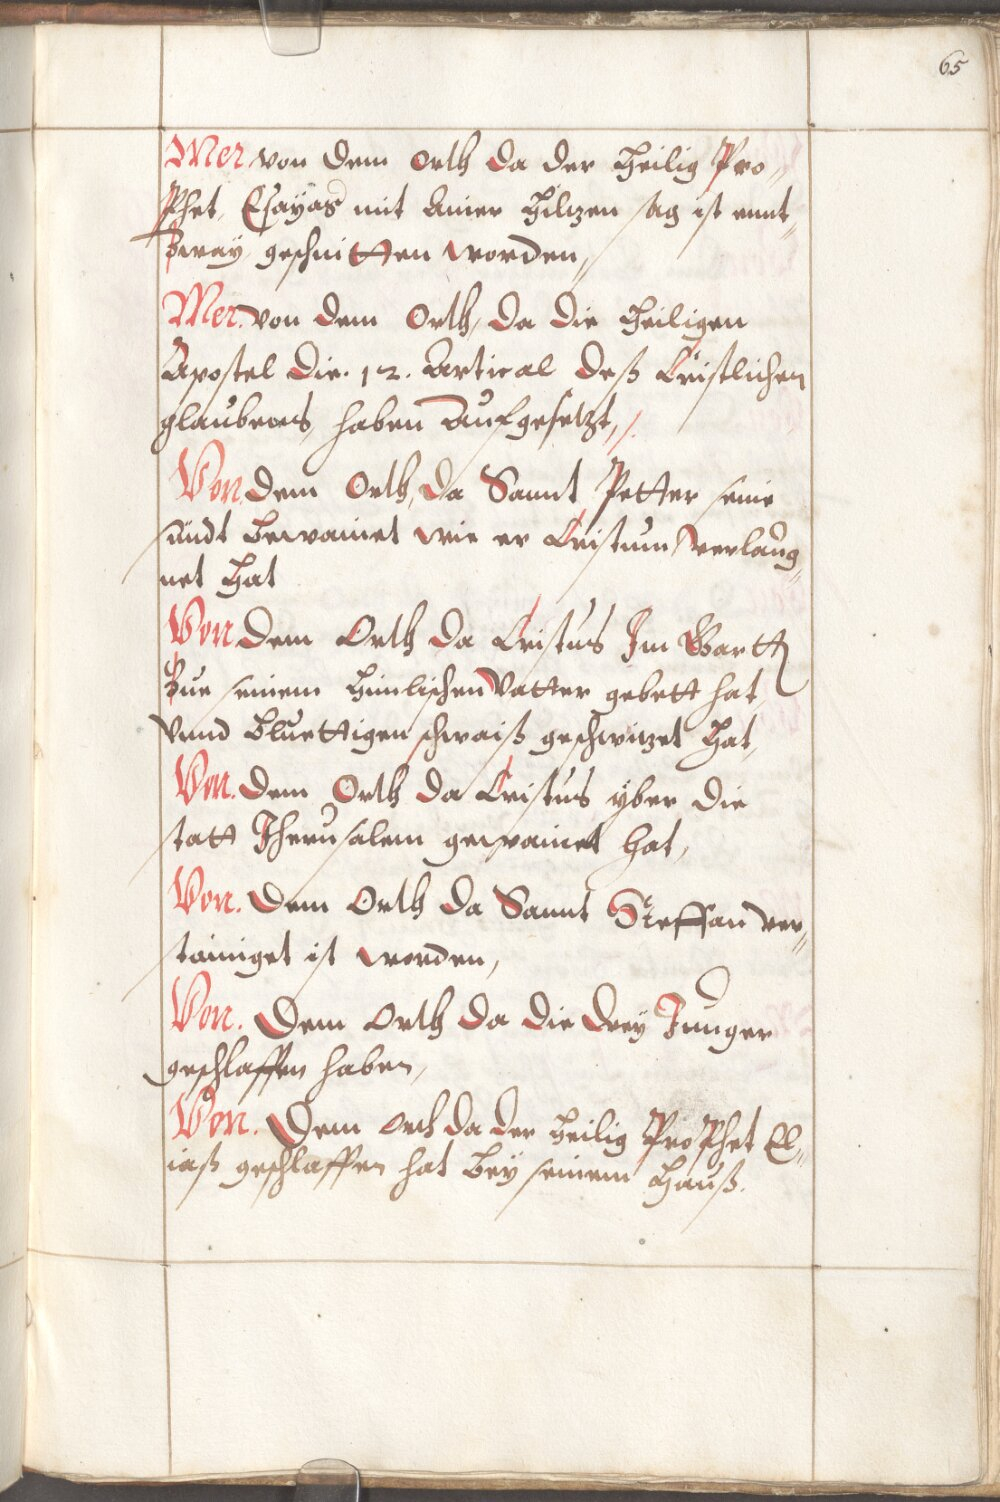 65
Mer von dem Orth da der Heilig Pro„
Phet, Esayas mit Ainer Hiltzen sag ist ennt„
Zway geschnitten worden„
Mer. von dem Orth, da die Heiligen
Apostel die. 12. Artical deß Cristlichen
glaubens, haben Aufgesetzt,
Von dem Orth, da Sannt Petter seine
sündt bewainet wie er Cristum verlaug„
net hat
Von dem Orth da Cristus Im Gartt
Zue seinem himlischen Vatter gebett hat
Vnnd bluettigen schwaiß geschwitzet hat,
Von. dem Orth da Cristus yber die
statt Jherusalem gewainet hat,
Von. dem Orth da Sannt Steffan ver„
stainiget ist worden,
Von. Dem Orth da die drey Junger
geschlaffen haben,
Von. Dem Orth da der Heilig ProPhet El„
iaß geschlaffen hat bey seinem Hauß.